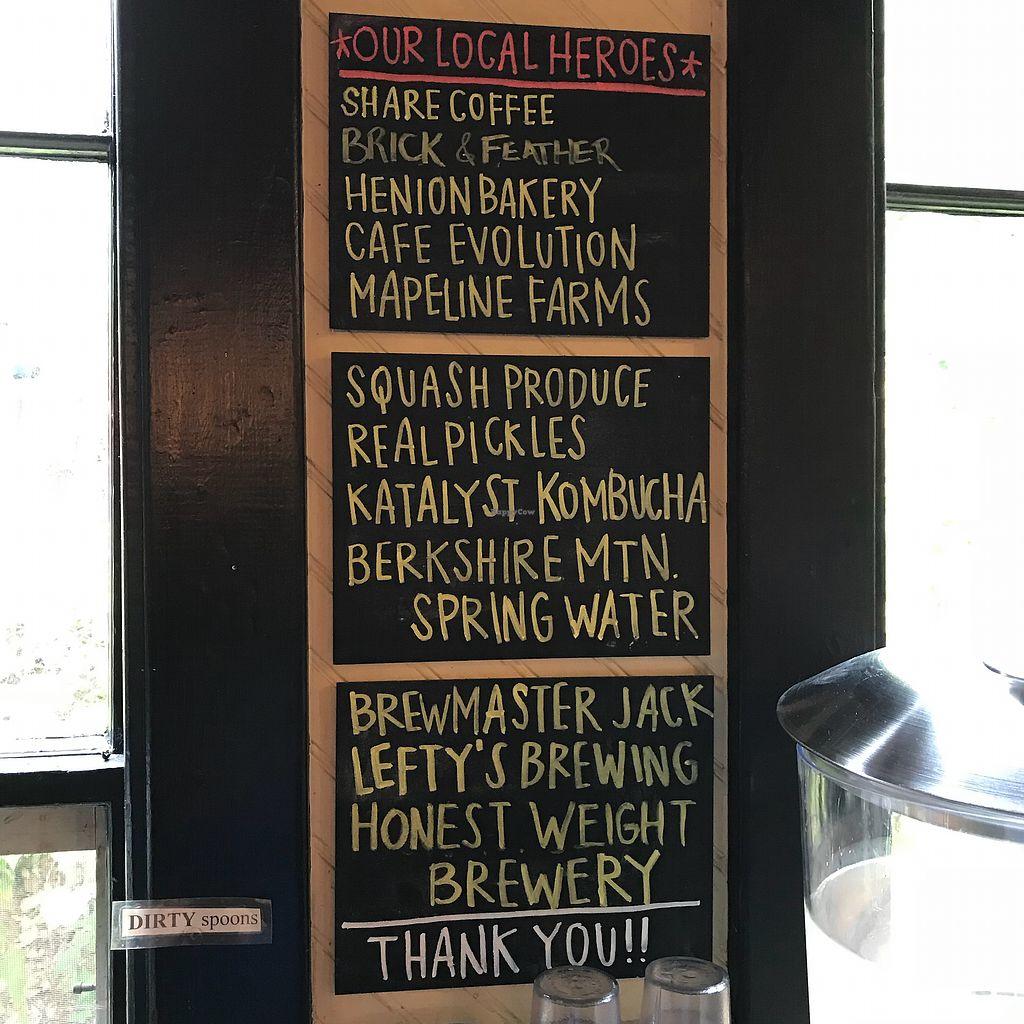 *OUR LOCAL HEROES*
SHARE COFFEE
BRICK & FEATHER
HENION BAKERY
CAFE EVOLUTION
MAPELINE FARMS
SQUASH PRODUCE
REAL PICKLES
KATALYST KOMBUCHA
HappyCow
BERKSHIRE MTN.
SPRING WATER
BREWMASTER JACK
LEFTY'S BREWING
HONEST WEIGHT
BREWERY
THANK YOU!!
DIRTY spoons